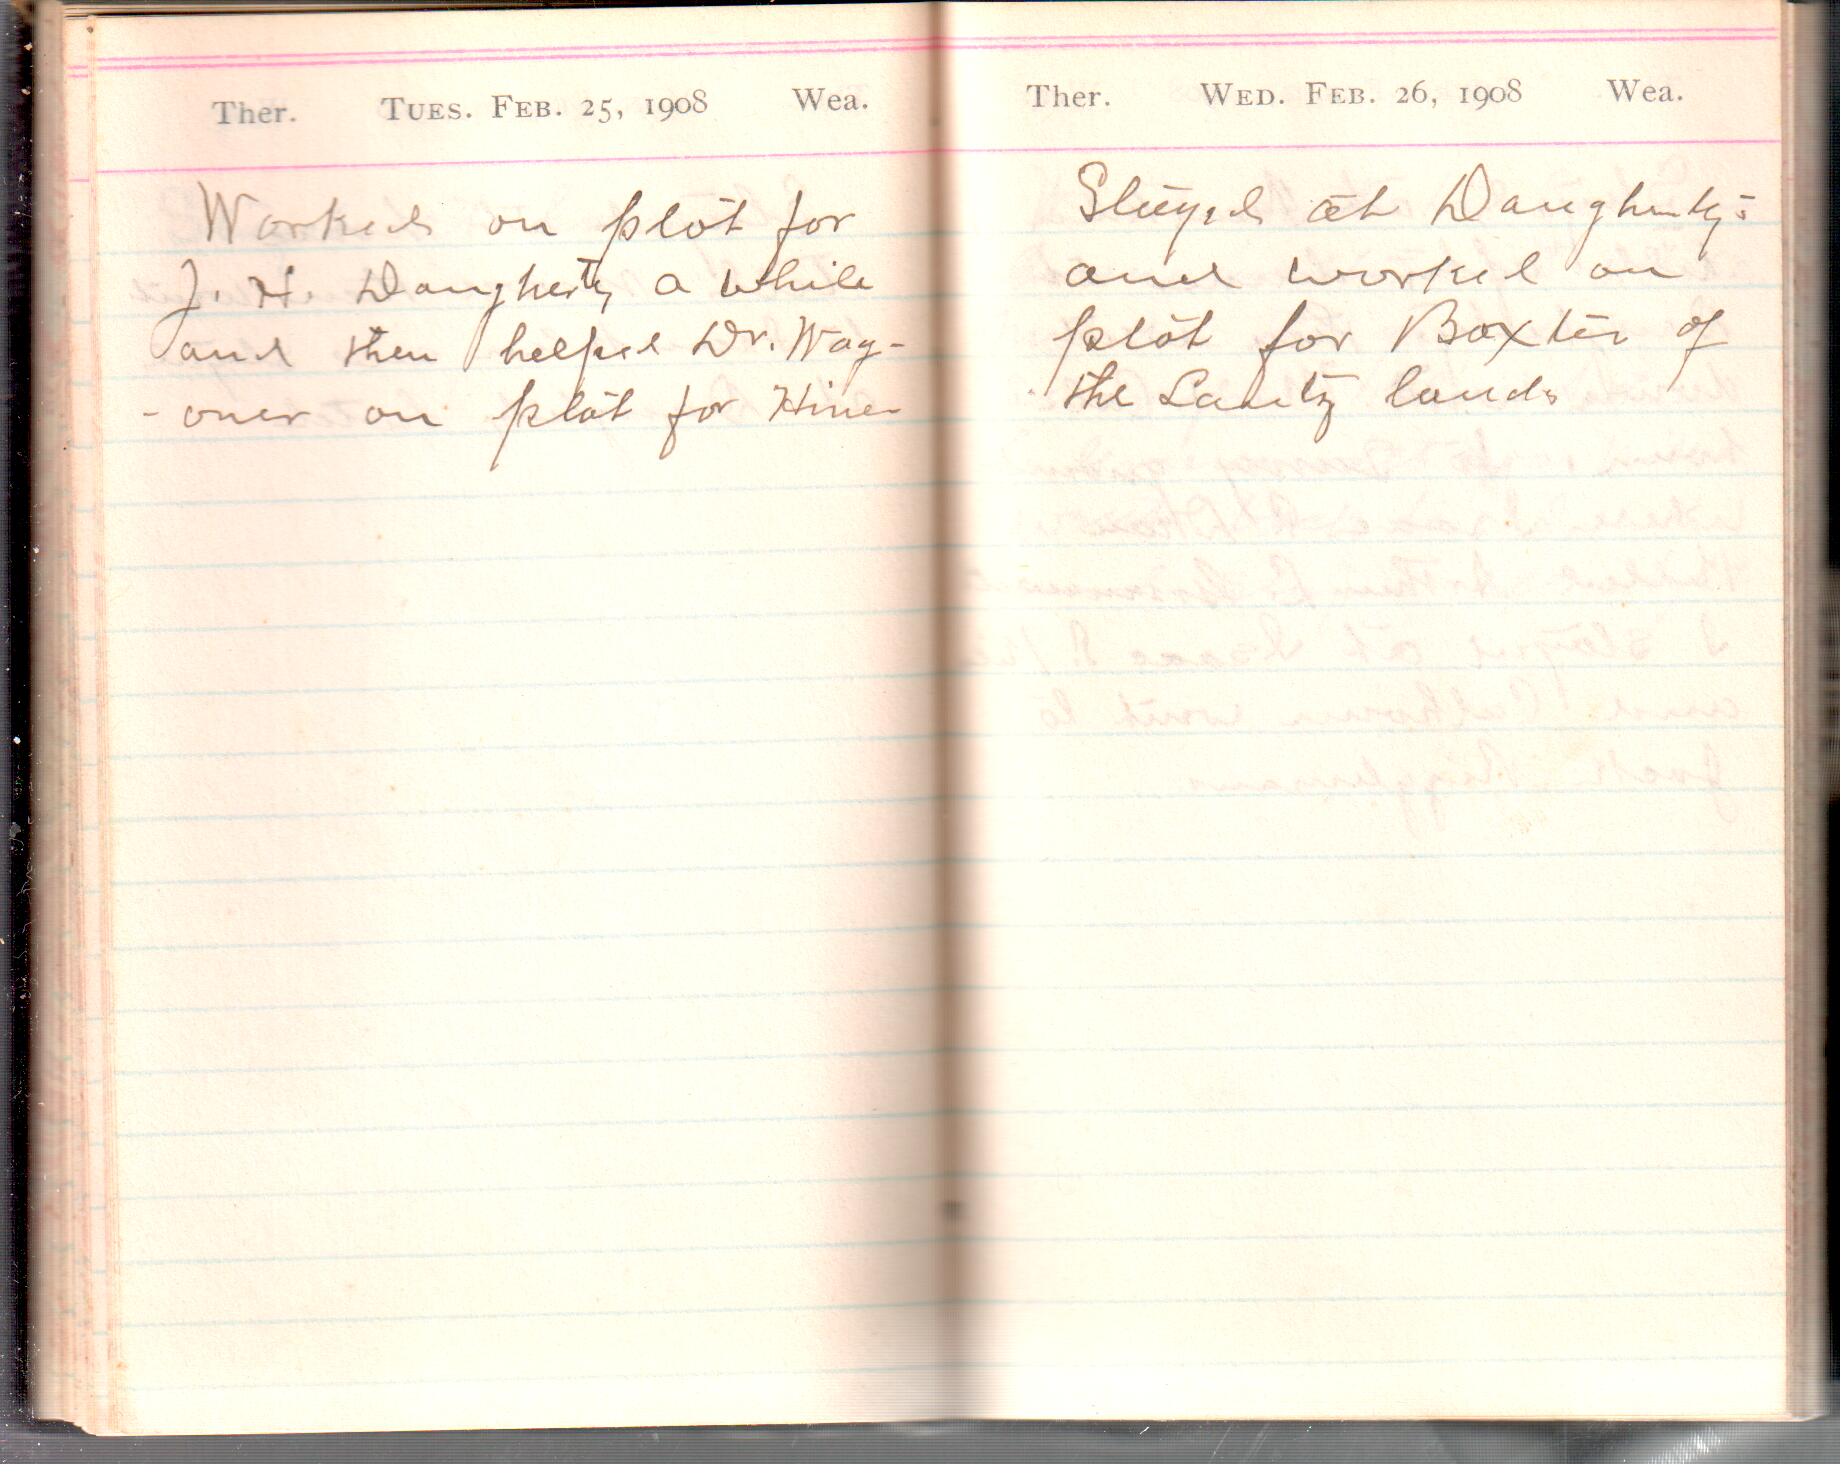 Ther. Tues. Feb. 25, 1908 Wea.
Worked on plot for
J. H. Daugherty a while
and then helped Dr. Wag-
-oner on plot for Hiner
Ther. Wed. Feb. 26, 1908 Wea.
Stayed at Daugherty's
and worked on
plot for Baxter of
the Lantz lands